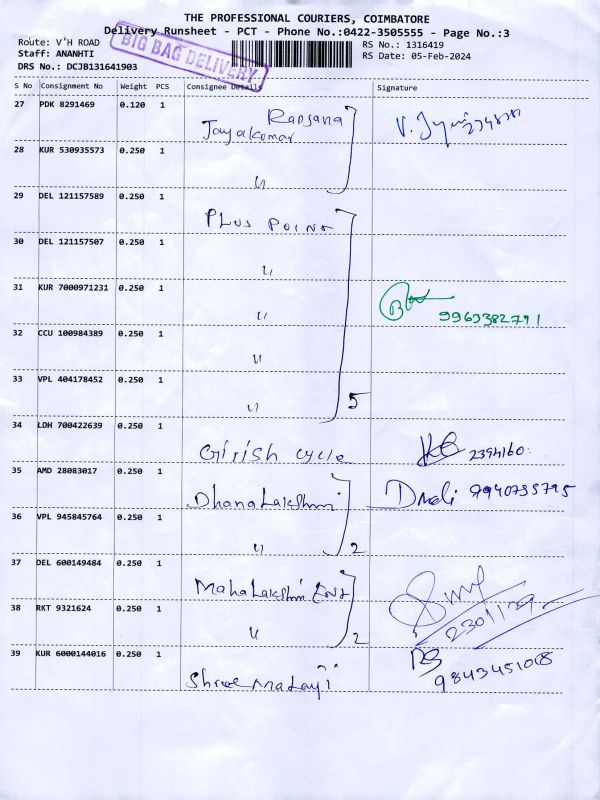 THE PROFESSIONAL COURIERS, COIMBATORE
Delivery Runsheet - PCT - Phone No.:0422-3505555 - Page No.:3
Route: V'H ROAD
RS No.: 1316419
Staff: ANANHTI
RS Date: 05-Feb-2024
DRS No.: DCJB131641903
BIG BAG DELIVERY
S No Consignment No Weight PCS Consignee Details Signature
27 PDK 8291469 0.120 1
Ranjana
Jayakumar
28 KUR 530935573 0.250 1
"
29 DEL 121157589 0.250 1
PLUS POINT
30 DEL 121157507 0.250 1
"
31 KUR 7000971231 0.250 1
"
9963382791
32 CCU 100984389 0.250 1
"
33 VPL 404178452 0.250 1
" 5
34 LDH 700422639 0.250 1
Girish cycle 2394160
35 AMD 28083017 0.250 1
Dhanalakshmi 9940735795
36 VPL 945845764 0.250 1
" 2
37 DEL 600149484 0.250 1
Mahalakshmi Ent
38 RKT 9321624 0.250 1
" 2
39 KUR 6000144016 0.250 1
Shree Mataji